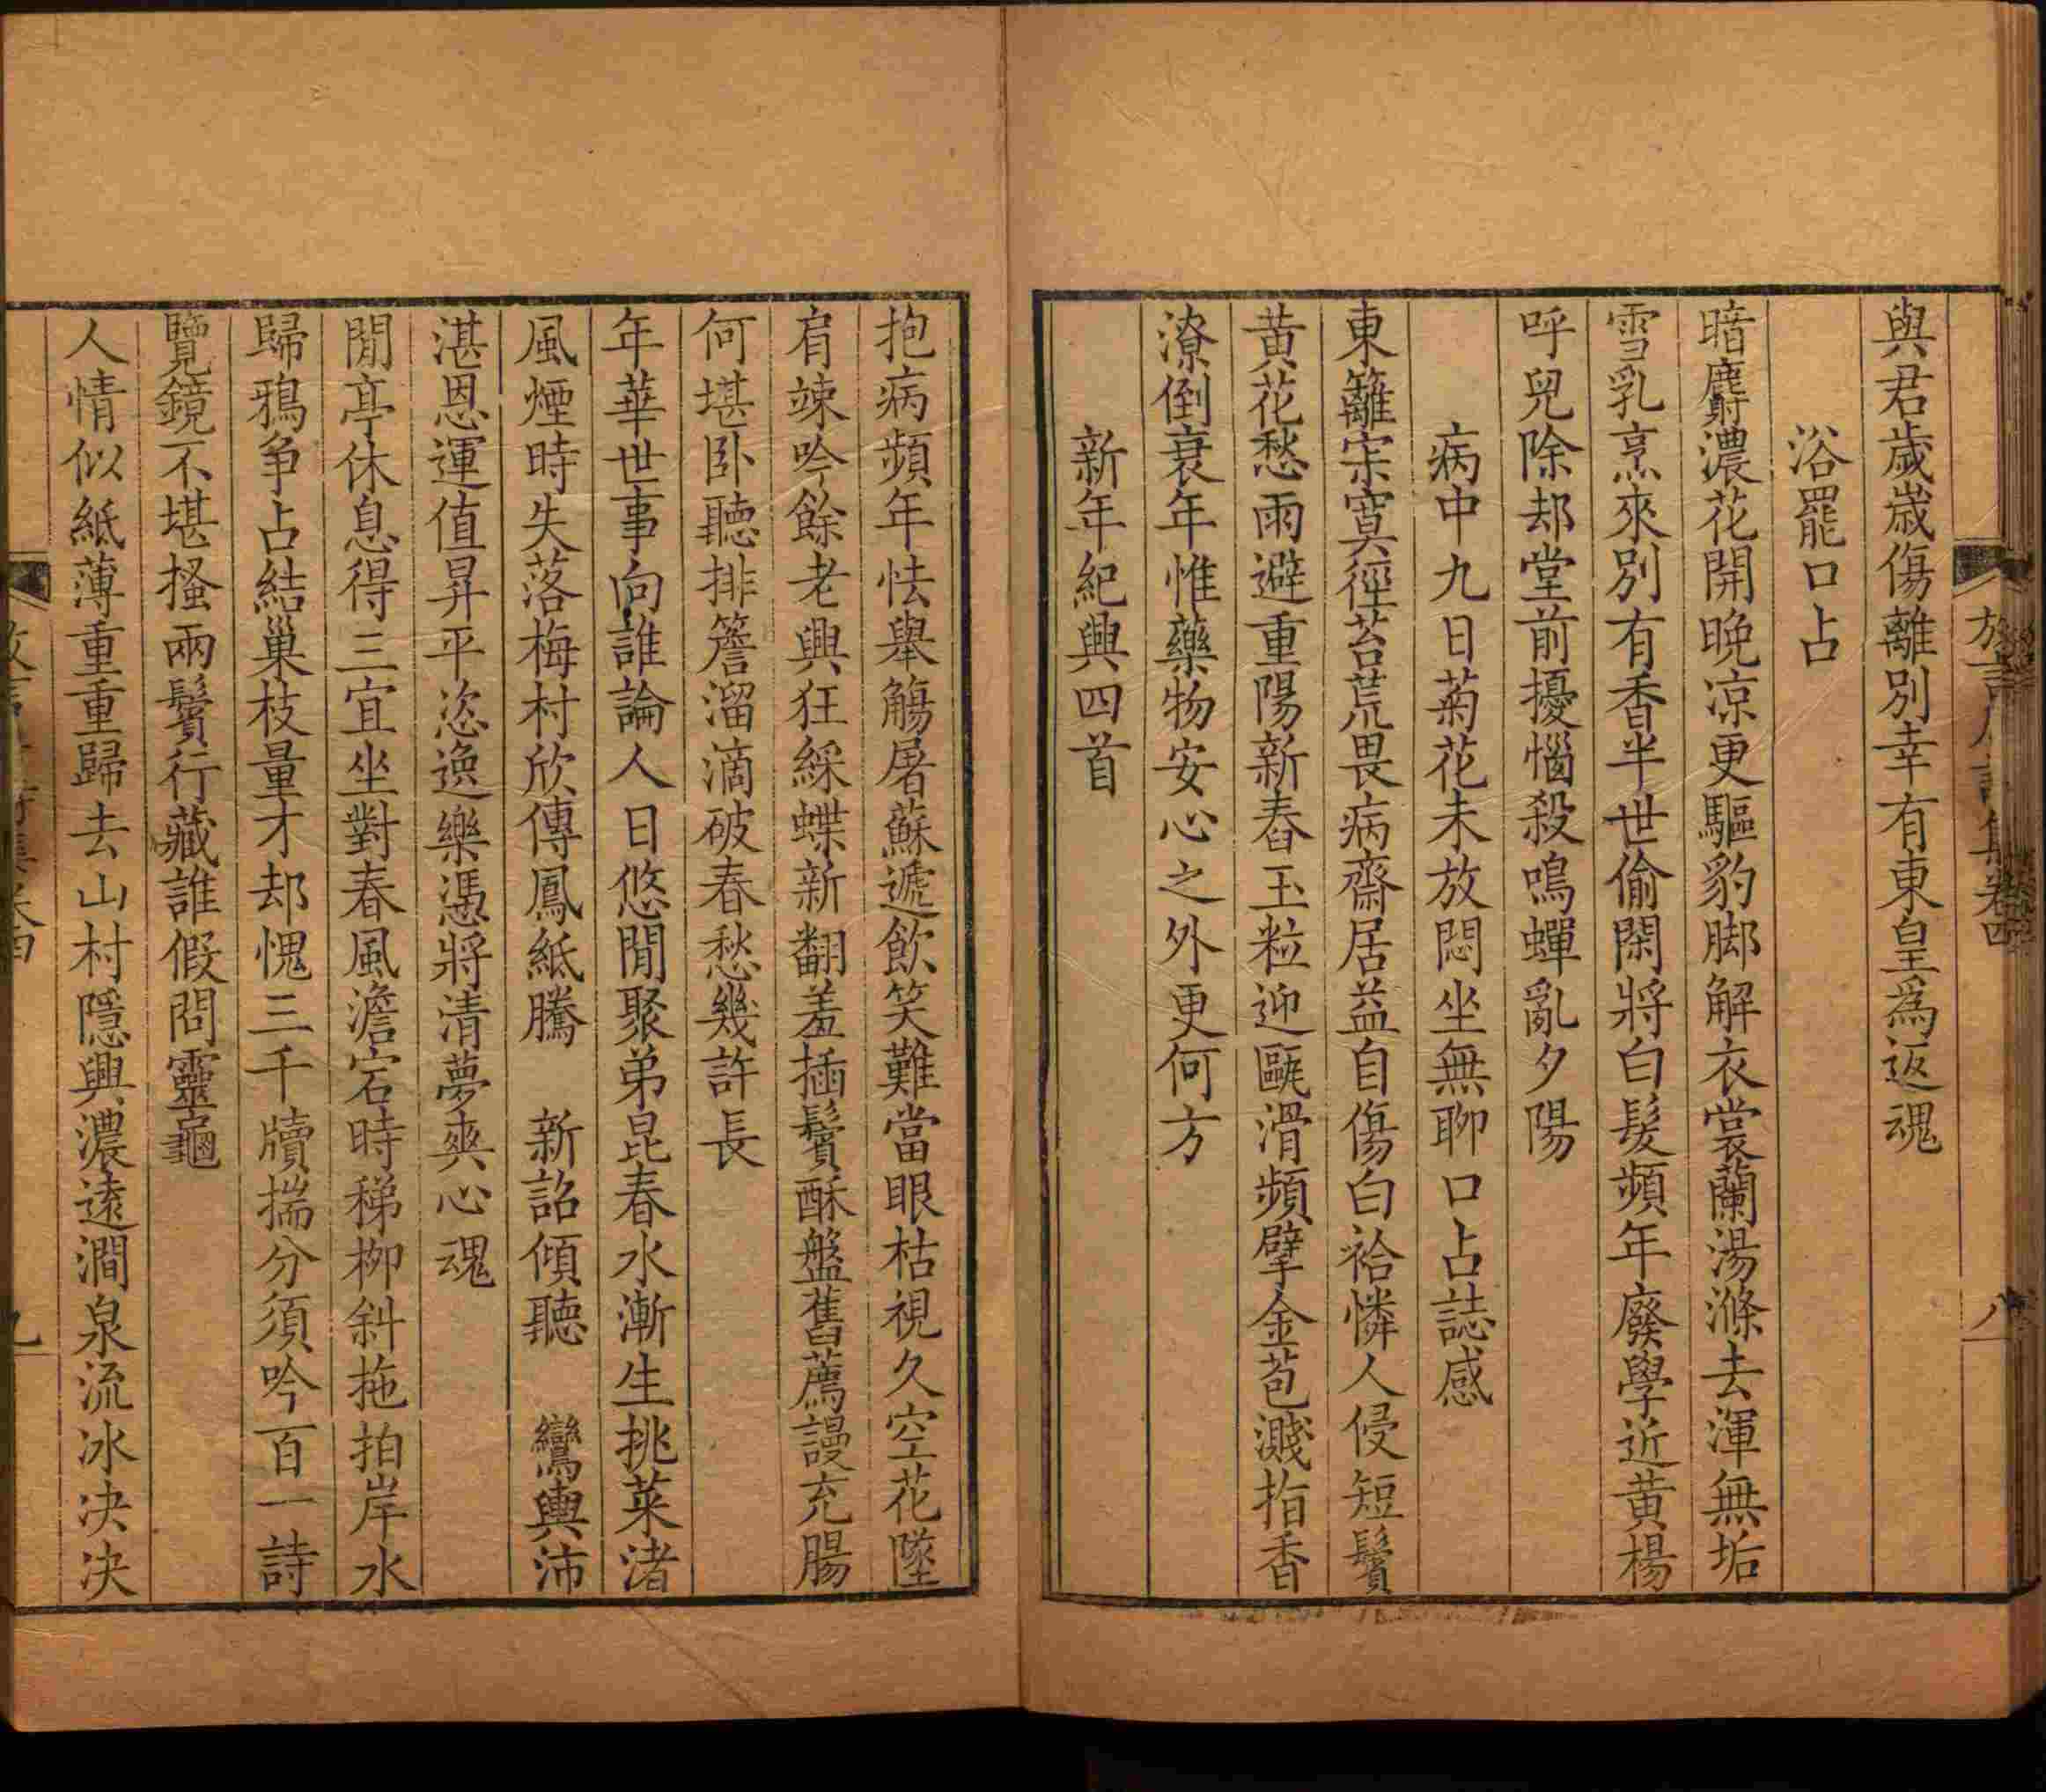 與君歲歲傷離別幸有東皇爲返魂
浴罷口占
暗麝濃花開晚凉更驅豹脚解衣裳蘭湯滌去渾無垢
雪乳烹來別有香半世偷閑將白髮頻年廢學近黄楊
呼兒除却堂前擾惱殺鳴蟬亂夕陽
病中九日菊花未放悶坐無聊口占誌感
東籬寀寞徑苔荒畏病齋居益自傷白袷憐人侵短鬢
黄花愁雨避重陽新舂玉粒迎匭滑頻擘金苞濺指香
潦倒衰年惟藥物安心之外更何方
新年紀興四首
卷四
八
抱病頻年怯舉觴屠蘇遞飲笑難當眼枯視久空花墜
肩竦吟餘老興狂綵蝶新翻羞插鬢酥盤舊薦謾充腸
何堪卧聽排簷溜滴破春愁幾許長
年華世事向誰論人日悠閒聚弟昆春水漸生挑菜渚
風煙時失落梅村欣傳鳳紙騰　新詔傾聽　鸞輿沛
湛恩運值昇平恣逸樂憑將清夢爽心魂
閒亭休息得三宜坐對春風澹宕時稊柳斜拖拍岸水
歸鴉争占結巢枝量才却愧三千牘揣分須吟百一詩
覽鏡不堪搔兩鬢行藏誰假問靈龜
人情似紙薄重重歸去山村隱興濃遠澗泉流冰决决
九